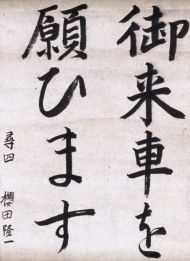 御来車を
願ひます
尋四 櫻田隆一